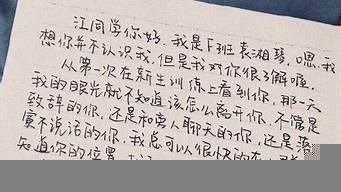 江同学你好，我是F班袁湘琴，嗯，我
想你并不认识我，但是我对你很了解啦，
从第一次在新生训练上看到你，那一天
我的眼光就不知道该怎么离开你，不管是
致辞的你，还是和别人聊天的你，还是落
寞不说话的你，我总可以很快的在
知道你的位置